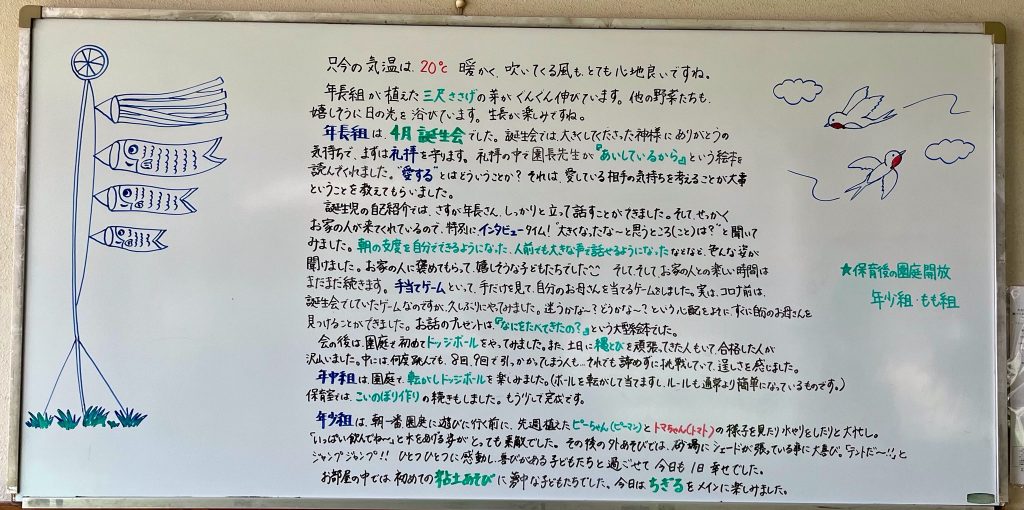 只今の気温は、20℃ 暖かく、吹いてくる風も、とても心地良いですね。
年長組が植えた三尺ささげの芽がぐんぐん伸びています。他の野菜たちも、
嬉しそうに日の光を浴びています。生長が楽しみですね。
年長組は、4月誕生会でした。誕生会では、大きくしてくださった神様にありがとうの
気持ちで、まずは礼拝を守ります。礼拝の中で園長先生が『あいしているから』という絵本を
読んでくれました。"愛する"とはどういうことか？それは、愛している相手の気持ちを考えることが大事
ということを教えてもらいました。
誕生児の自己紹介では、さすが年長さん、しっかりと立って話すことができました。そして、せっかく
お家の人が来てくれているので、特別にインタビュータイム！"大きくなったな〜と思うところ(こと)は？"と聞いて
みました。朝の支度を自分でできるようになった、人前でも大きな声で話せるようになったなどなど、色んな姿が
聞けました。お家の人に褒めてもらって、嬉しそうな子どもたちでした そして、そして、お家の人との楽しい時間は
まだまだ続きます。手当てゲームといって、手だけを見て、自分のお母さんを当てるゲームをしました。実は、コロナ前は、
誕生会でしていたゲームなのですが、久しぶりにやってみました。迷うかな〜？どうかな〜？という心配をよそに、すぐに自分のお母さんを
見つけることができました。お話のプレゼントは、『なにをたべてきたの？』という大型絵本でした。
会の後は、園庭で初めてドッジボールをやってみました。また、土日に縄とびを頑張ってきた人もいて、合格した人が
沢山いました。中には、何度跳んでも、8回、9回で引っかかってしまう人も…それでも諦めずに挑戦していて、逞しさを感じました。
年中組は、園庭で、転がしドッジボールを楽しみました。(ボールを転がして当てますし、ルールも通常より簡単になっているものです。)
保育室では、こいのぼり作りの続きもしました。もう少しで完成です。
年少組は、朝一番園庭に遊びに行く前に、先週植えたピーちゃん(ピーマン)とトマちゃん(トマト)の様子を見たり水やりをしたりと大忙し。
「いっぱい飲んでね〜」と水をあげる姿がとっても素敵でした。その後の外あそびでは、砂場にシェードが張っている事に大喜び。「テントだ〜!!」と
ジャンプジャンプ!! ひとつひとつに感動し、喜びがある子どもたちと過ごせて今日も1日幸せでした。
お部屋の中では初めての粘土あそびに夢中な子どもたちでした。今日は、ちぎるをメインに楽しみました。
★保育後の園庭開放
年少組・もも組